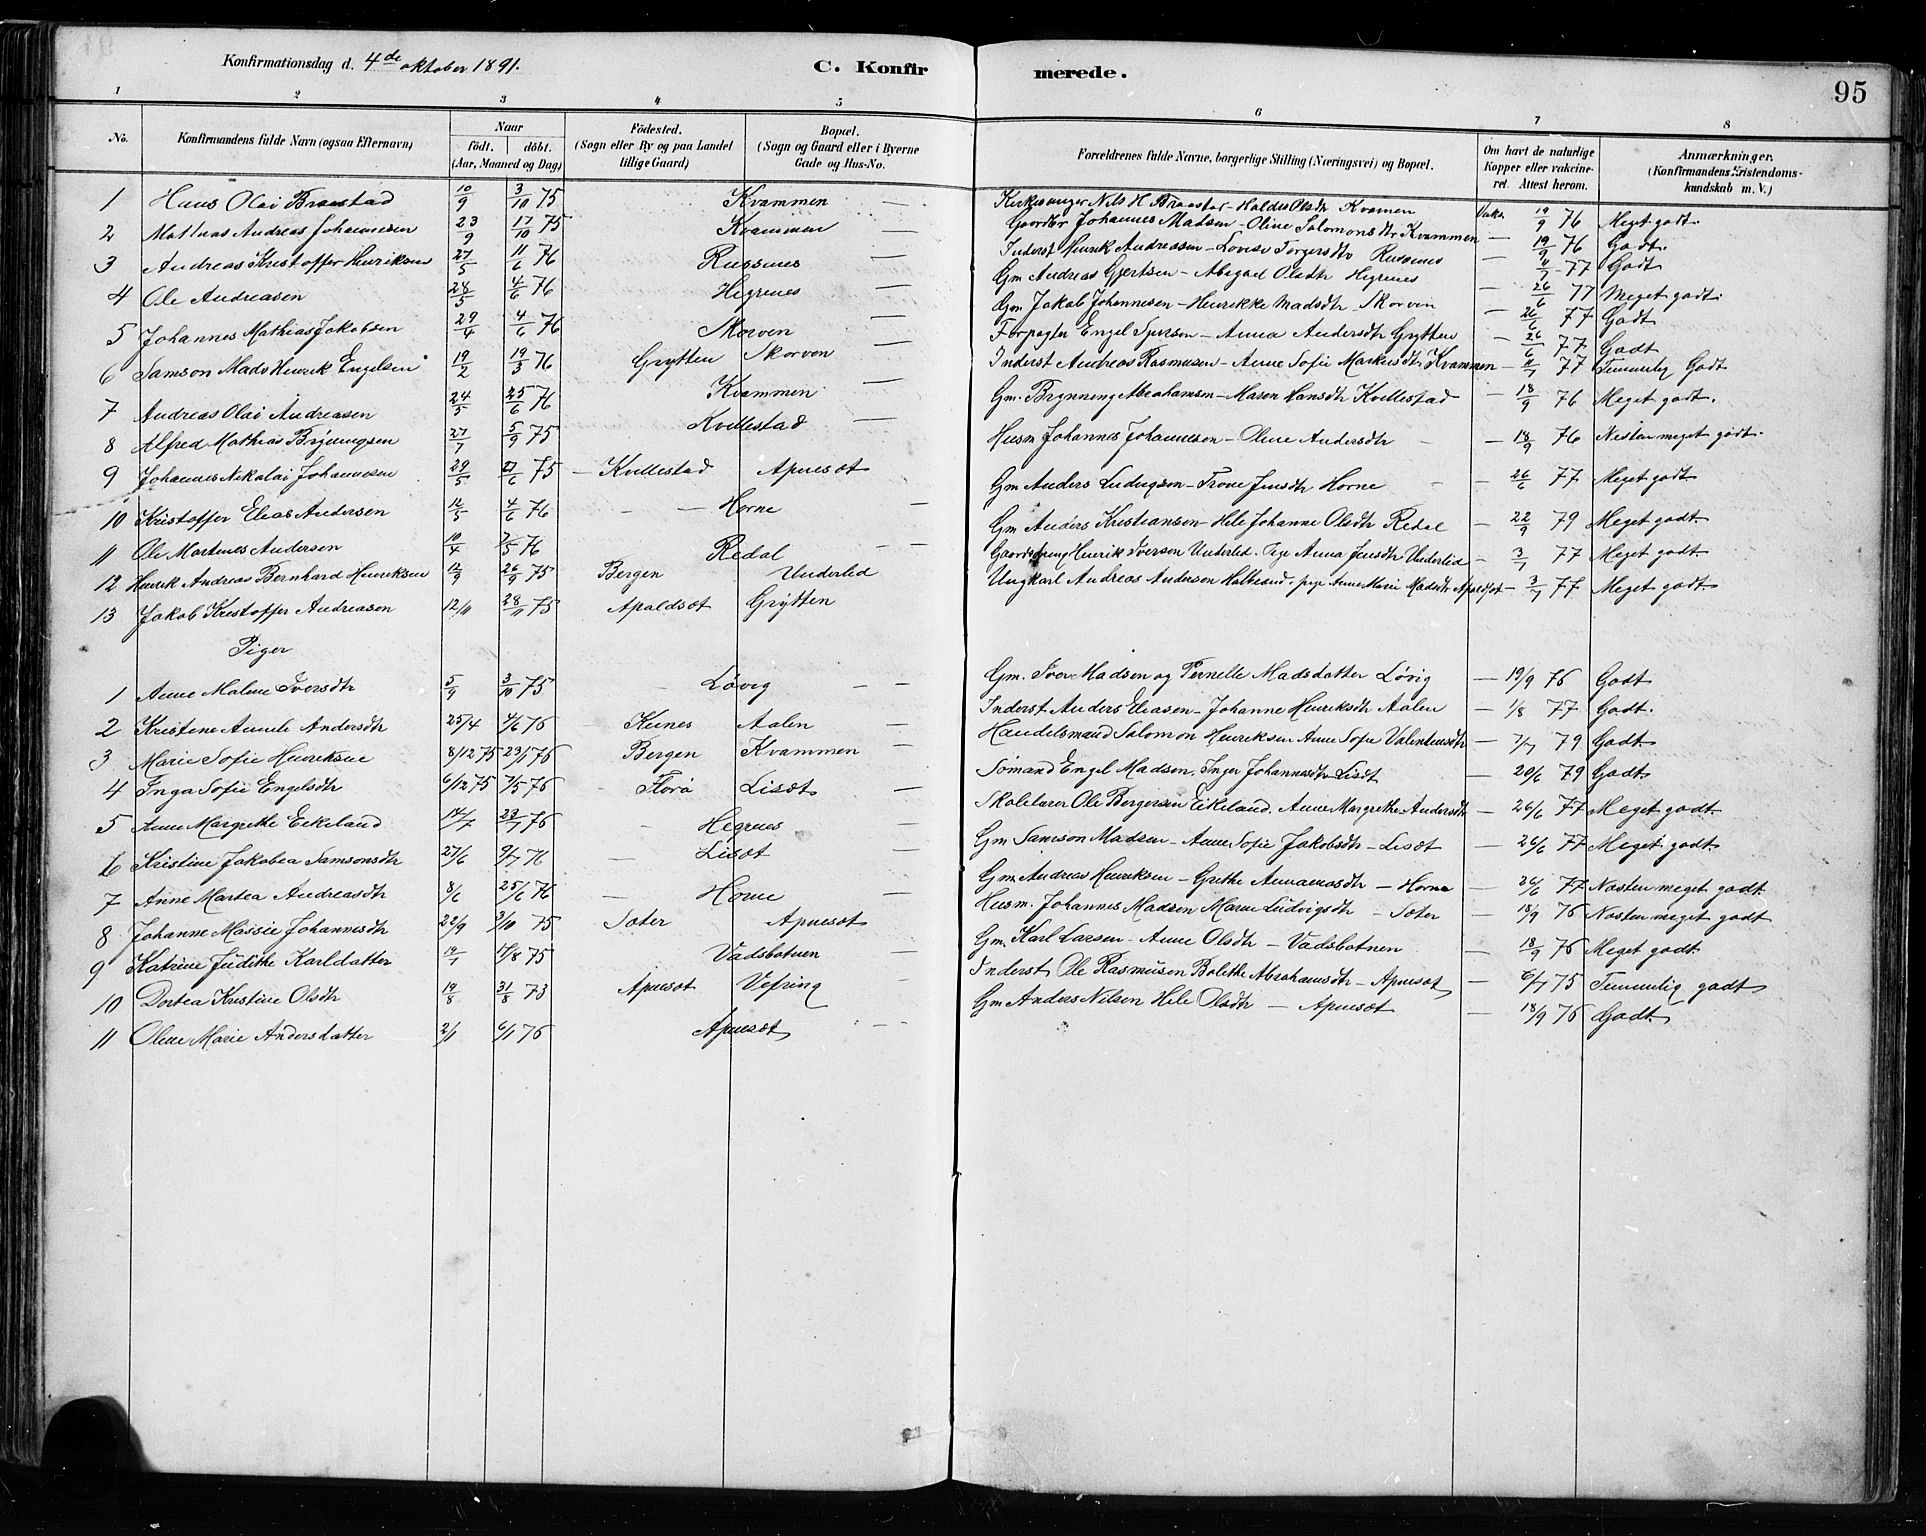 Konfirmationsdag d. 4de oktober 1891.
C. Konfirmerede.
95
1 2 3 4 5 6 7 8
No. Konfirmandens fulde Navn (ogsaa Efternavn) Naar født. døbt. (Aar, Maaned og Dag) Fødested. (Sogn eller By og paa Landet tillige Gaard) Bopæl. (Sogn og Gaard eller i Byerne Gade og Hus-No. Forældrenes fulde Navne, borgerlige Stilling (Næringsvei) og Bopæl. Om havt de naturlige Kopper eller vakcineret. Attest herom. Anmærkninger. (Konfirmandens Kristendomskundskab m. V.)
1 Hans Olai Braestad 10/9 3/10 75 Kvammen — Kirkesanger Nils H Braestad - Haldis Olsdtr Kvamen Vaks. 19/9 76 Meget godt.
2 Mathias Andreas Johannesen 23/9 17/10 75 Kvammen — Gaardbr Johannes Madsen - Oline Salomonsdtr Kvammen — 19/9 76 Godt.
3 Andreas Kristoffer Henriksen 27/5 11/6 76 Russenes — Inderst Henrik Andreasen - Lovise Torgersdtr Russenes — 11/7 77 Godt
4 Ole Andreasen 28/5 4/6 76 Hegrenes — Gm Andreas Gjertsen - Abigael Olsdtr Hegrenes — 26/6 77 Meget godt.
5 Johannes Mathias Jakobsen 29/4 4/6 76 Skorven — Gm Jakob Johannesen - Henrikke Madsdtr Skorven — 26/6 77 Godt
6 Samson Mads Henrik Engelsen 19/2 19/3 76 Grytten Skorven — Forpagter Engel Iversen - Anna Andersdtr Grytten — 26/6 77 Godt
7 Andreas Olai Andreasen 24/5 25/6 76 Kvammen — Inderst Andreas Rasmusen - Anne Sofie Markusdtr Kvammen — 11/7 77 Temmelig Godt
8 Alfred Mathias Brynningsen 27/7 5/9 75 Kvillestad — Gm. Brynning Abrahamsen - Maren Hansdtr Kvillestad — 18/9 76 Meget godt.
9 Johannes Nikolai Johannesen 29/5 27/6 75 — Kvillestad Apnesæt Husm Johannes Johannesen - Oline Andersdtr — 18/9 76 Næsten meget godt.
10 Kristoffer Elias Andersen 12/5 4/6 76 — — Horne — Gm Anders Ludvigson - Trone Jensdtr Horne — 26/6 77 Meget godt
11 Ole Martines Andersen 10/4 7/5 76 Redal — Gm Anders Kristiansen - Hele Johanne Olsdtr Redal — 22/9 79 Meget godt.
12 Henrik Andreas Bernhard Henriksen 12/9 26/9 75 Bergen Underlid Gaardsdreng Henrik Iverson Underlid. Pige Anna Jensdtr Underlid — 3/7 77 Meget godt.
13 Jakob Kristoffer Andreason 12/11 28/11 75 Apaldsæt Grytten Ungkarl Andreas Anderson, pige Anne Marie Madsdtr Apaldsæt — 3/7 77 Meget godt.
Piger
1 Anne Malene Iversdtr 5/9 3/10 75 — Løvig — Gm. Iver Madsen og Pernelle Madsdatter Løvig — 19/9 76 Godt
2 Kristene Amule Andersdtr 25/4 4/6 76 Aalen Inderst Anders Eleasen - Johanne Henriksdtr Aalen — 1/8 77 Godt.
3 Marie Sofie Henriksne 8/12 75 23/1 76 Bergen Kvammen — Handelsmand Salomon Henriksen Anne Sofie Valentinsdtr — 7/7 79 Godt.
4 Inga Sofie Engelsdtr 6/12 75 7/5 76 — Florø Lisæt — Sømand Engel Madsen, Inger Johannesdtr Lisæt — 20/6 79 Godt.
5 Anne Margrethe Eikeland 14/7 23/7 76 — Hegrenes — Skolelærer Ole Bergersen Eikeland. Anne Margrethe Andersdtr — 26/6 77 Meget godt.
6 Kristine Jakobea Samsonsdtr 27/6 9/7 76 — Lisæt — Gm Samson Madsen - Anne Sofie Jakobsdtr - Lisæt — 26/6 77 Meget godt.
7 Anne Martea Andreasdtr 8/6 25/6 76 — Horne — Gm Andreas Henriksen - Grethe — Horne — 26/6 77 Næsten meget godt
8 Johanne Maisie Johannesdtr 22/9 3/10 75 Sæter Apnesæt Husm. Johannes Madsen Marne Ludvigsdtr - Sæter — 18/9 76 Næsten meget godt
9 Katrine Judithe Karldatter 19/7 15/8 75 Vadsbotnen — Gm. Karl Larsen - Anne Olsdtr - Vadsbotnen — 18/9 76 Meget godt.
10 Dortea Kristine Olsdtr 19/8 31/8 73 Apnesæt Vefring — Inderst Ole Rasmusen Bolethe Abrahamsdtr - Apnesæt — 6/7 75 Temmelig godt
11 Oline Marie Andersdatter 2/1 6/1 76 Apnesæt — Gm Anders Nilsen Hele Olsdtr — Apnesæt — 18/9 76 Godt.